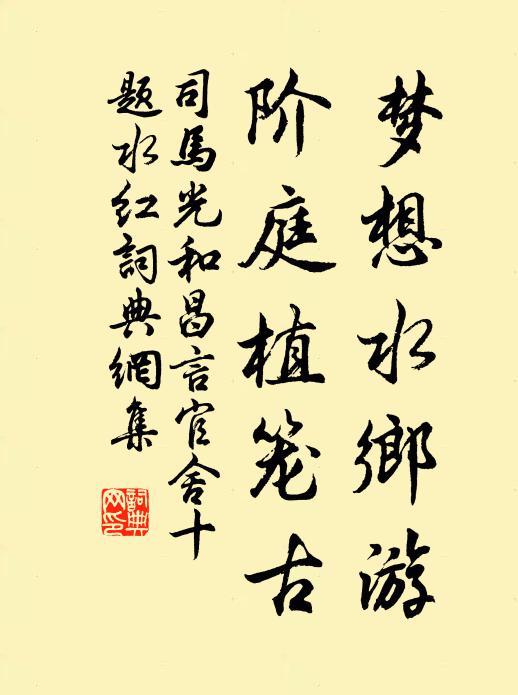 梦想水鄉游
阶庭植笼古
司馬光和昌言官舍十
题水红詞典網集
詞典
网印